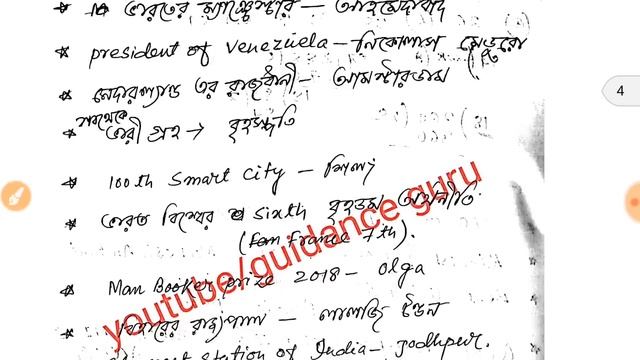 * ভারতের ম্যাঞ্চেস্টার — আহমেদাবাদ
* president of venezuela — নিকোলাস মেডুরো
* নেদারল্যান্ড এর রাজধানী — আমস্টারডাম
সবথেকে
* ভারী গ্রহ → বৃহস্পতি
4
* 100th smart city — শিলং
* ভারত বিশ্বের sixth বৃহত্তম অর্থনীতি
(France 7th).
* Man Booker prize 2018 — olga
* বিহারের রাজ্যপাল — লালজি টন্ডন
station of India — jodhpur.
youtube/guidance guru